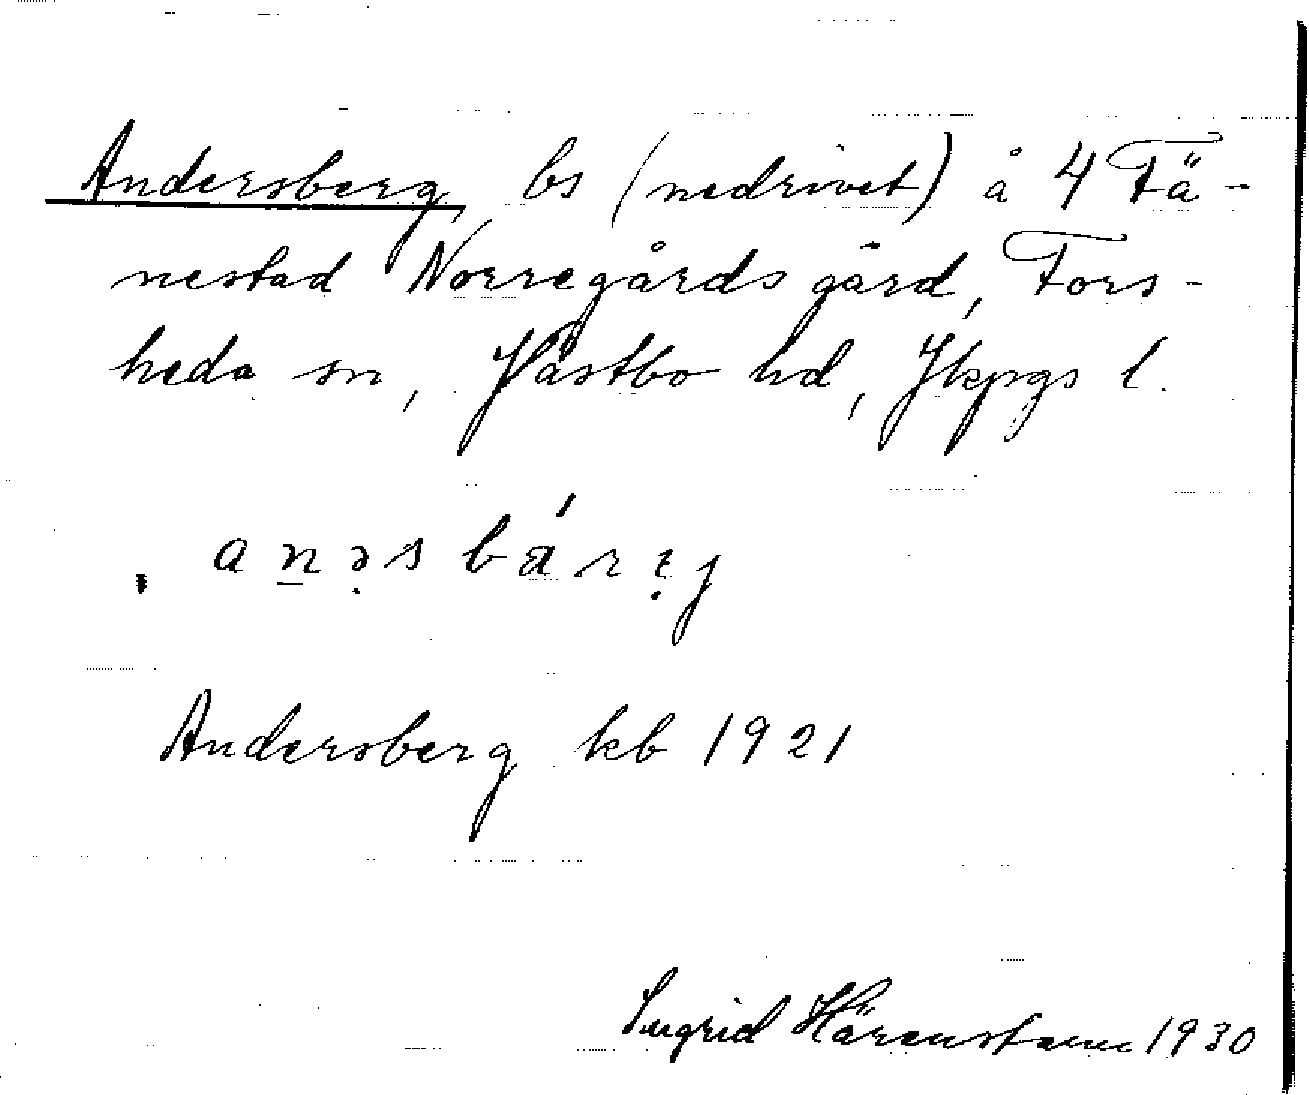 Andersberg, bs (nedrivet) å 4 Fä-
nestad Norregårds gård, Fors-
heda sn, Västbo hd, Jkpgs l.
anəsbárɛj
Andersberg kb 1921
Ingrid Härenstam 1930